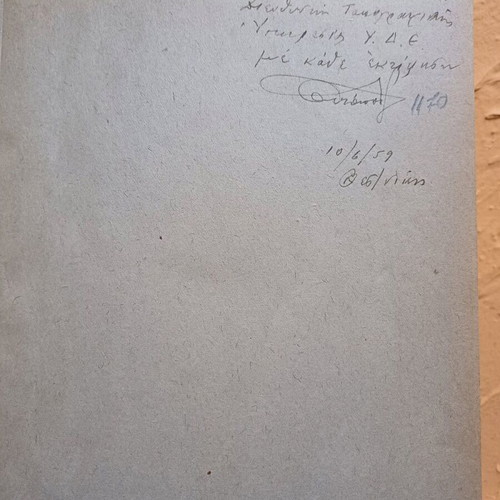 Διευθυντήν Τοπογραφικῆς
Ὑπηρεσίας Υ.Δ.Ε
μέ κάθε ἐκτίμησιν
1170
10/6/59
Θεσ/νίκη